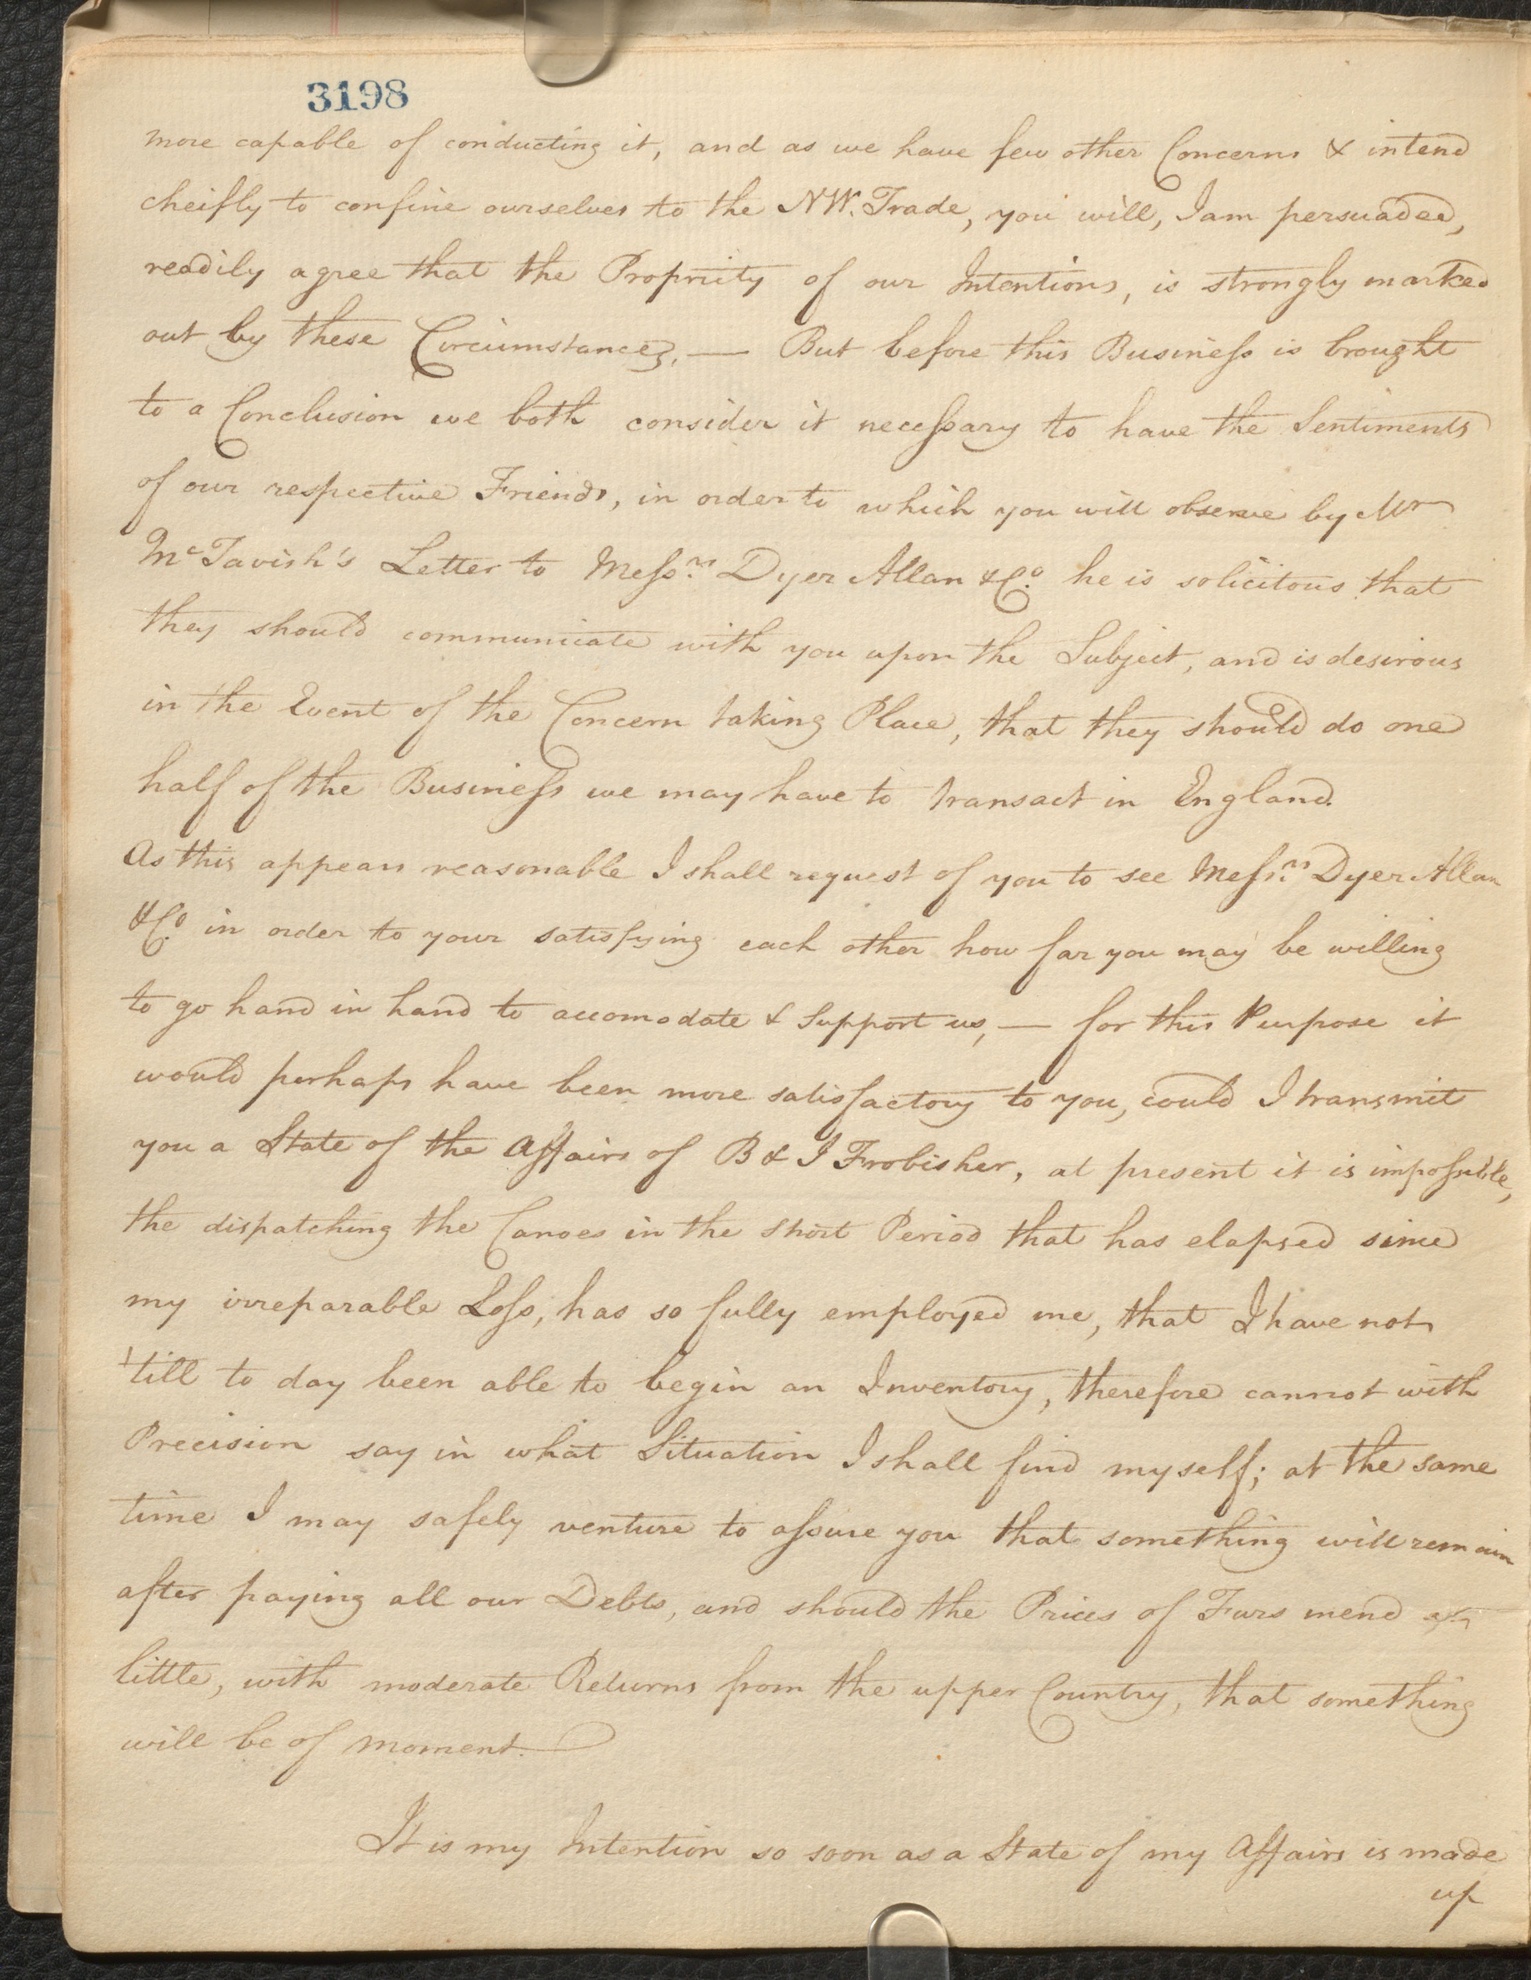 3198
more capable of conducting it, and as we have few other Concerns & intend
cheifly to confine ourselves to the NW. Trade, you will, I am persuaded,
readily agree that the Propriety of our Intentions, is strongly marked
out by these Circumstances, — But before this Business is brought
to a Conclusion we both consider it necessary to have the Sentiments
of our respective Friends, in order to which you will observe by Mr
McTavish's Letter to Messrs Dyer Allan & Co. he is solicitous that
they should communicate with you upon the Subject, and is desirous
in the Event of the Concern taking Place, that they should do one
half of the Business we may have to transact in England.
As this appears reasonable I shall request of you to see Messrs Dyer Allan
& Co. in order to your satisfying each other how far you may be willing
to go hand in hand to accomodate & support us, — for this Purpose it
would perhaps have been more satisfactory to you, could I transmit
you a State of the Affairs of B & J Frobisher, at present it is impossible,
the dispatching the Canoes in the short Period that has elapsed since
my irreparable Loss, has so fully employed me, that I have not
'till to day been able to begin an Inventory, therefore cannot with
Precision say in what Situation I shall find myself; at the same
time I may safely venture to assure you that something will remain
after paying all our Debts, and should the Prices of Furs mend a
little, with moderate Returns from the upper Country, that something
will be of moment.
It is my Intention so soon as a State of my Affairs is made
up